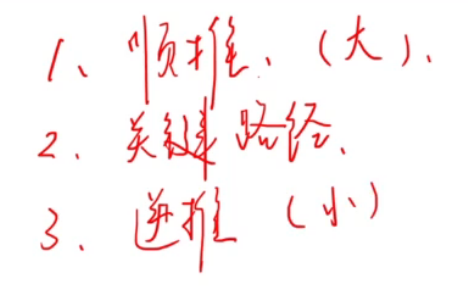 1、顺推、（大）、
2、关键路径、
3、逆推（小）